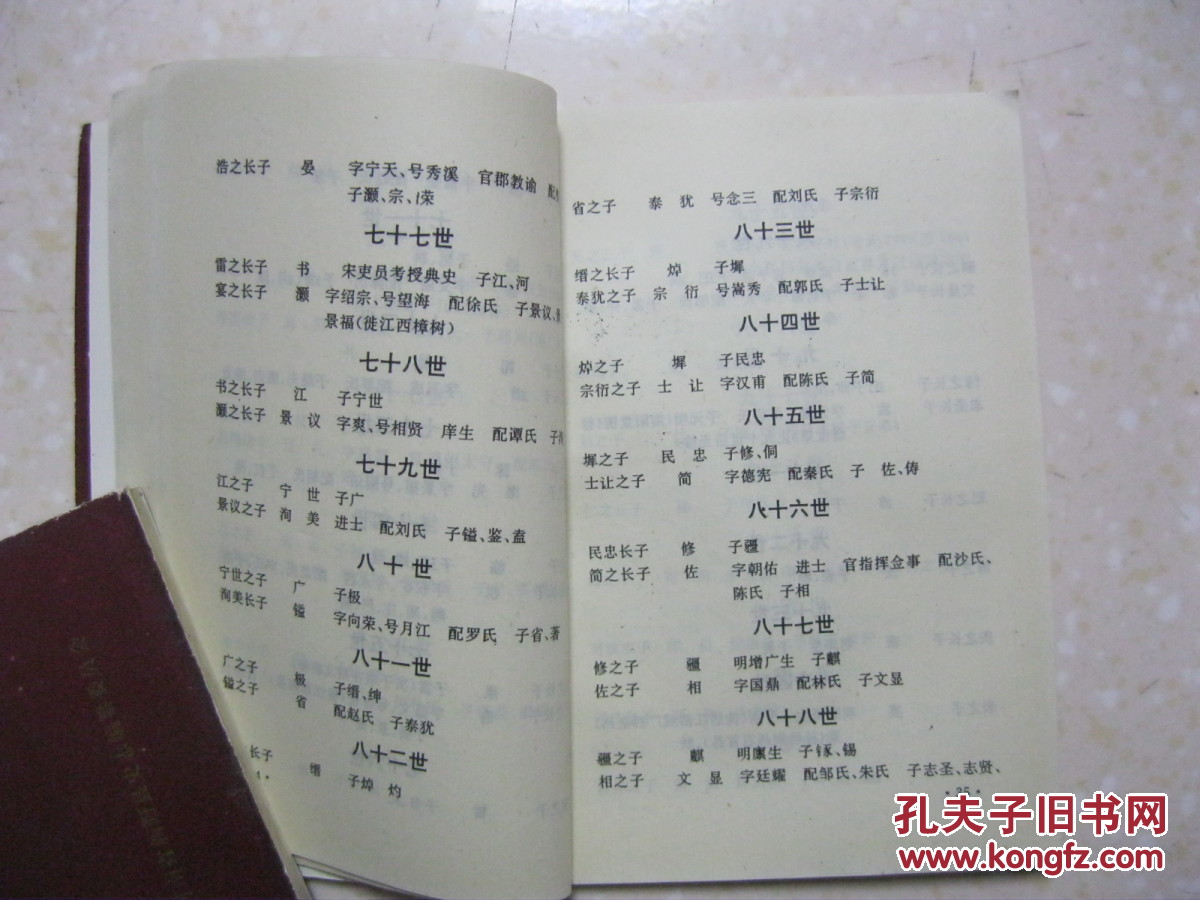 浩之长子 晏 字宁天、号秀溪 官郡教谕
子灏、宗、荣
七十七世
雷之长子 书 宋吏员考授典史 子江、河
宴之长子 灏 字绍宗、号望海 配徐氏 子景议、
景福(徙江西樟树)
七十八世
书之长子 江 子宁世
灏之长子 景议 字爽、号相贤 庠生 配谭氏
七十九世
江之子 宁世 子广
景议之子 洵美 进士 配刘氏 子镒、鉴、盍
八十世
宁世之子 广 子极
洵美长子 镒 字向荣、号月江 配罗氏 子省、著
八十一世
广之子 极 子缙、绅
镒之子 省 配赵氏 子泰犹
八十二世
长子 缙 子焯 灼
省之子 泰犹 号念三 配刘氏 子宗衍
八十三世
缙之长子 焯 子墀
泰犹之子 宗衍 号嵩秀 配郭氏 子士让
八十四世
焯之子 墀 子民忠
宗衍之子 士让 字汉甫 配陈氏 子简
八十五世
墀之子 民忠 子修、侗
士让之子 简 字德宪 配秦氏 子 佐、俦
八十六世
民忠长子 修 子疆
简之长子 佐 字朝佑 进士 官指挥佥事 配沙氏、
陈氏 子相
八十七世
修之子 疆 明增广生 子麒
佐之子 相 字国鼎 配林氏 子文显
八十八世
疆之子 麒 明廪生 子 、锡
相之子 文显 字廷耀 配邹氏、朱氏 子志圣、志贤、
孔夫子旧书网
www.kongfz.com